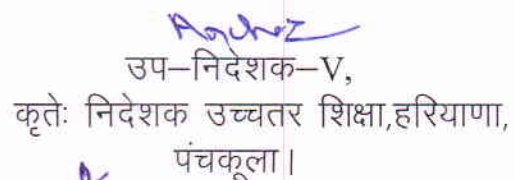 उप–निदेशक–V,
कृतेः निदेशक उच्चतर शिक्षा,हरियाणा,
पंचकूला।